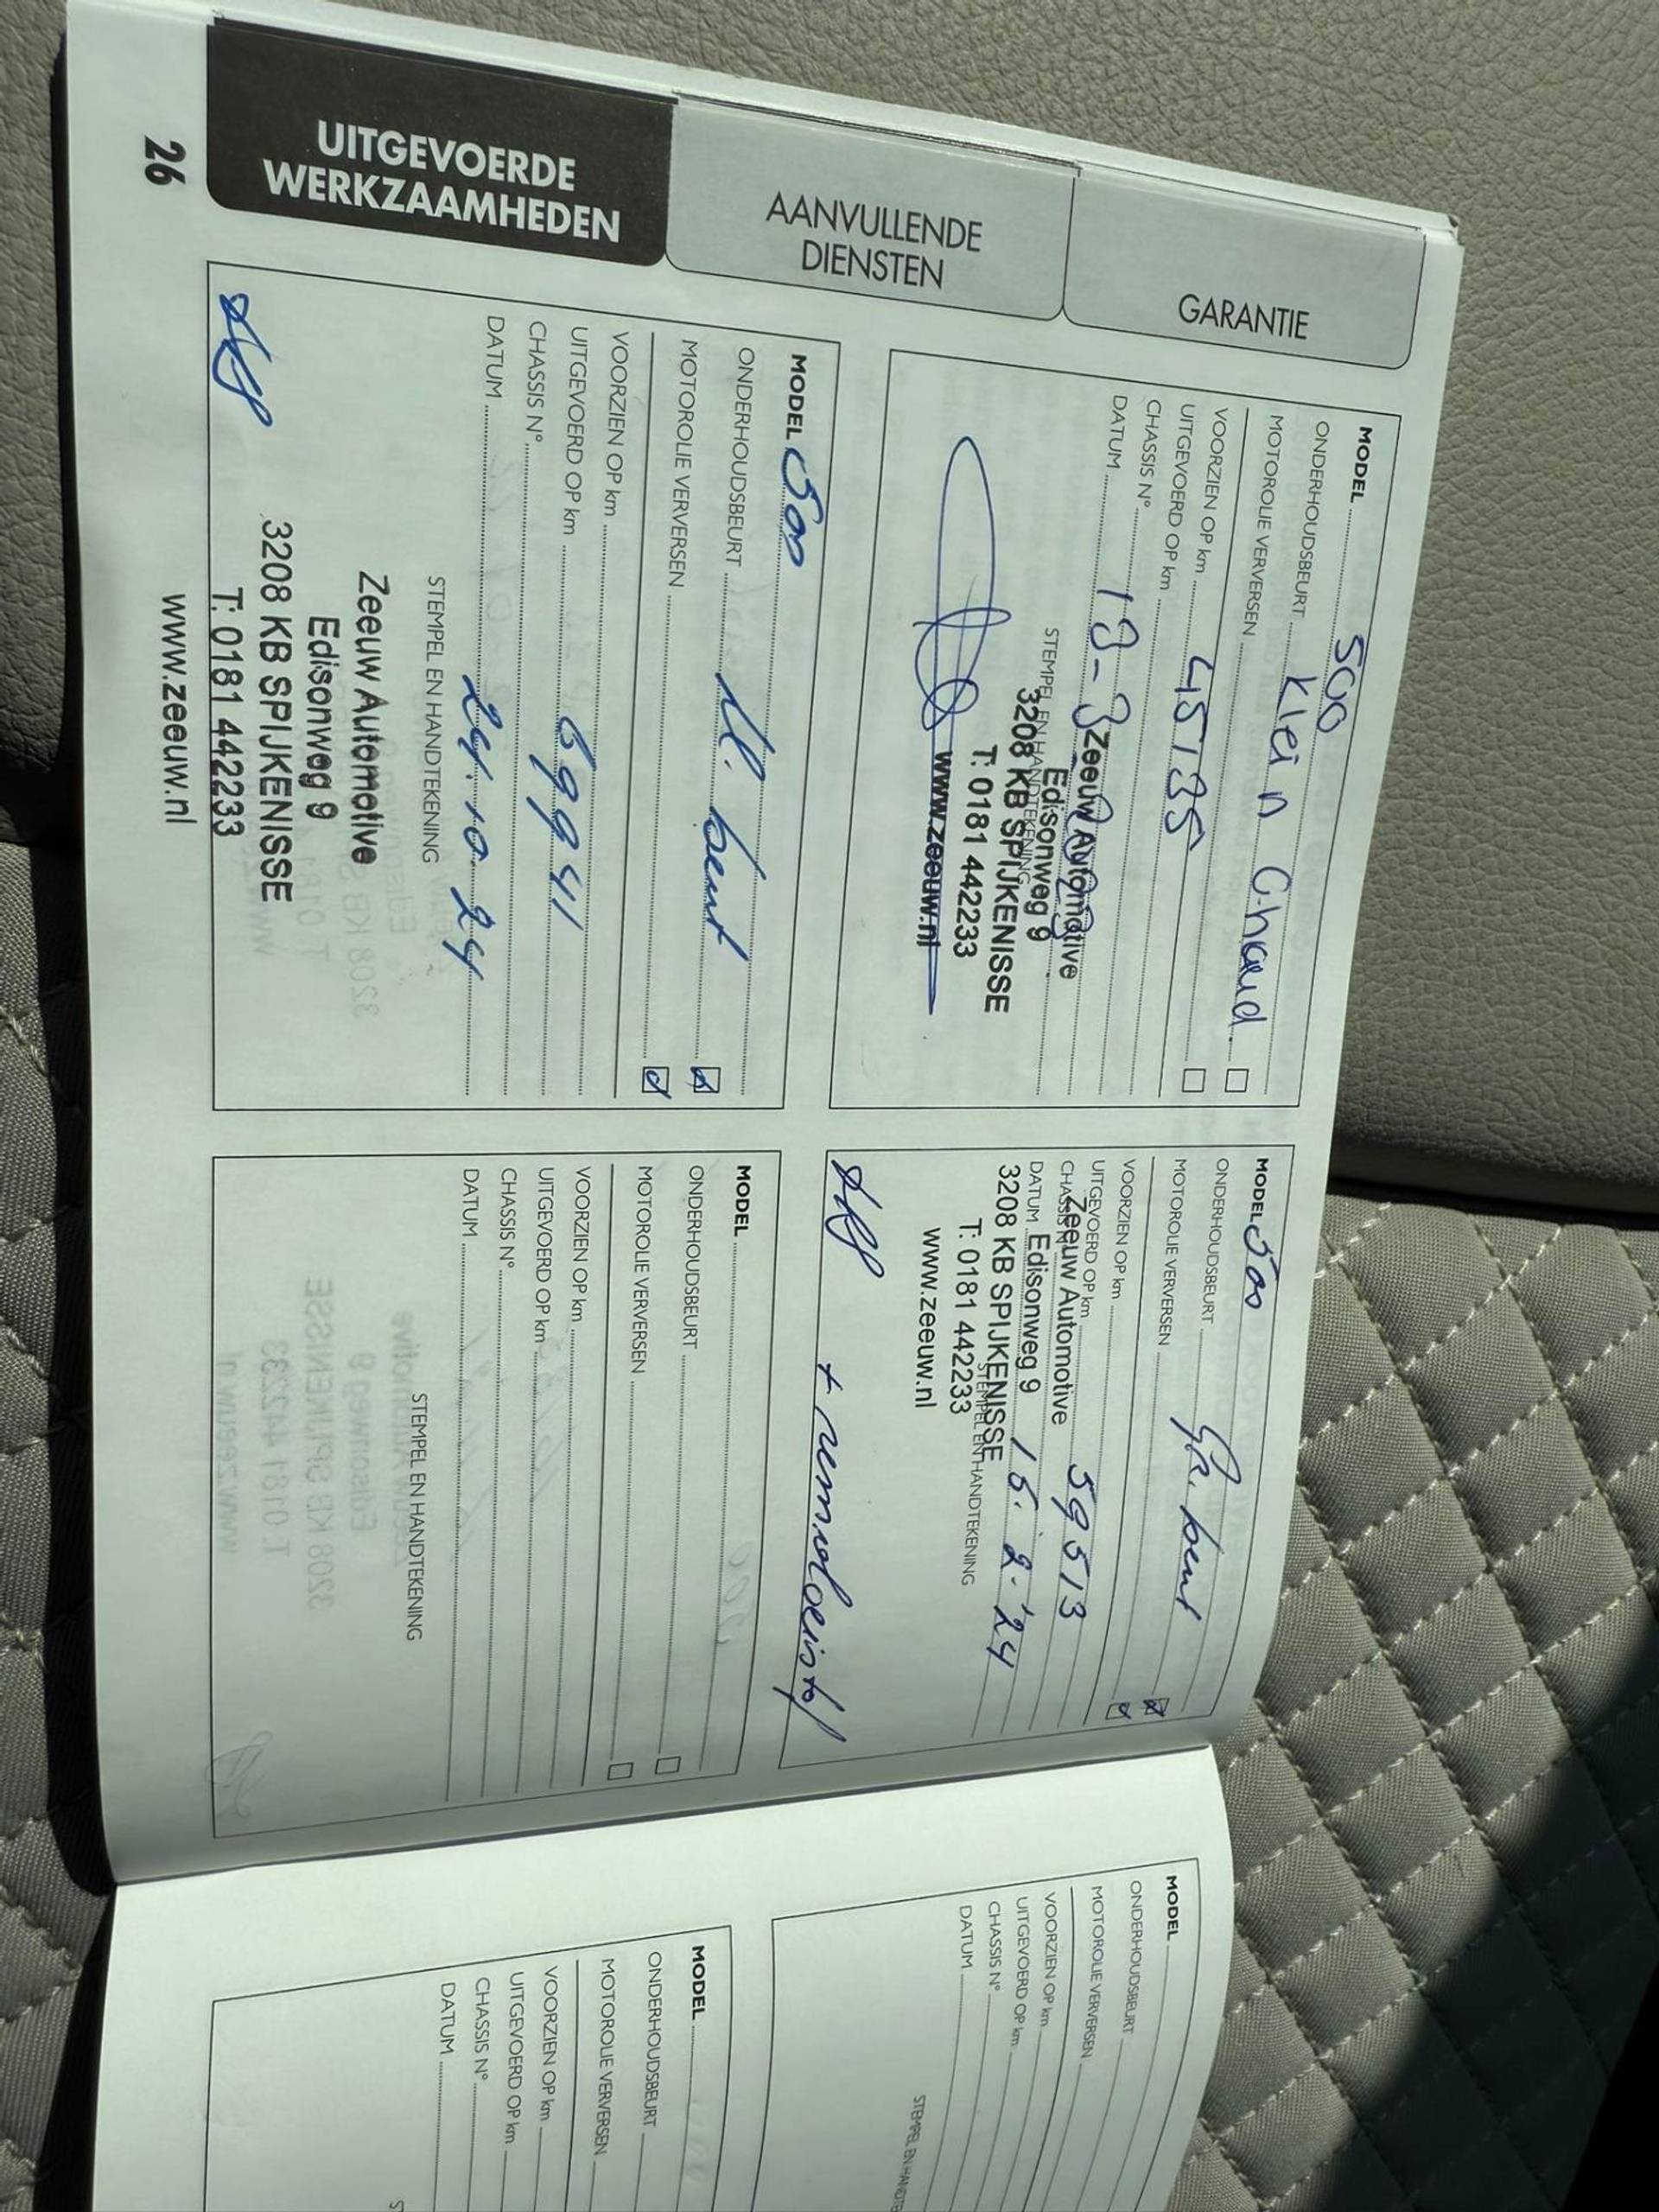 GARANTIE
AANVULLENDE
DIENSTEN
UITGEVOERDE
WERKZAAMHEDEN
26
MODEL 500
ONDERHOUDSBEURT Klein Ghaud
MOTOROLIE VERVERSEN
VOORZIEN OP km 45135
UITGEVOERD OP km
CHASSIS N°
DATUM 13-3-2023
STEMPEL EN HANDTEKENING
Zeeuw Automotive
Edisonweg 9
3208 KB SPIJKENISSE
T: 0181 442233
www.zeeuw.nl
MODEL 500
ONDERHOUDSBEURT Gr. beurt
MOTOROLIE VERVERSEN
VOORZIEN OP km
UITGEVOERD OP km 59513
CHASSIS N°
DATUM 15. 2-'24
STEMPEL EN HANDTEKENING
Zeeuw Automotive
Edisonweg 9
3208 KB SPIJKENISSE
T: 0181 442233
www.zeeuw.nl
+ remvloeistof
MODEL 500
ONDERHOUDSBEURT kl. beurt
MOTOROLIE VERVERSEN
VOORZIEN OP km
UITGEVOERD OP km 69941
CHASSIS N°
DATUM 24.10.24
STEMPEL EN HANDTEKENING
Zeeuw Automotive
Edisonweg 9
3208 KB SPIJKENISSE
T: 0181 442233
www.zeeuw.nl
MODEL
ONDERHOUDSBEURT
MOTOROLIE VERVERSEN
VOORZIEN OP km
UITGEVOERD OP km
CHASSIS N°
DATUM
STEMPEL EN HANDTEKENING
MODEL
ONDERHOUDSBEURT
MOTOROLIE VERVERSEN
VOORZIEN OP km
UITGEVOERD OP km
CHASSIS N°
DATUM
STEMPEL EN HANDTE
MODEL
ONDERHOUDSBEURT
MOTOROLIE VERVERSEN
VOORZIEN OP km
UITGEVOERD OP km
CHASSIS N°
DATUM